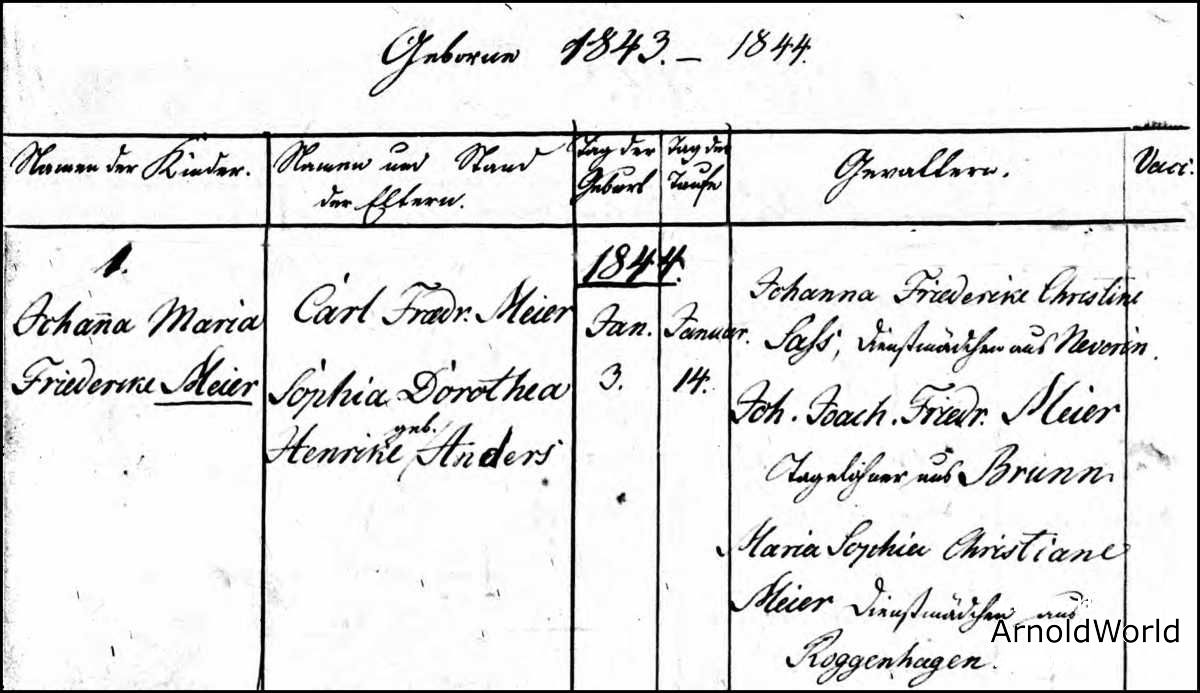 Geborne 1843. – 1844.
Namen der Kinder.
Namen und Stand
der Eltern.
Tag der
Geburt
Tag der
Taufe
Gevattern.
Vacc.
1.
Johan̄a Maria
Friedericke Meier
Carl Friedr. Meier
Sophia Dorothea
Henrike geb. Anders
1844.
Jan.
3.
Januar.
14.
Johanna Friedericke Christine
Sass, Dienstmädchen aus Neverin.
Joh. Joach. Friedr. Meier
Tagelöhner aus Brunn.
Maria Sophia Christiane
Meier Dienstmädchen aus
Roggenhagen.
ArnoldWorld